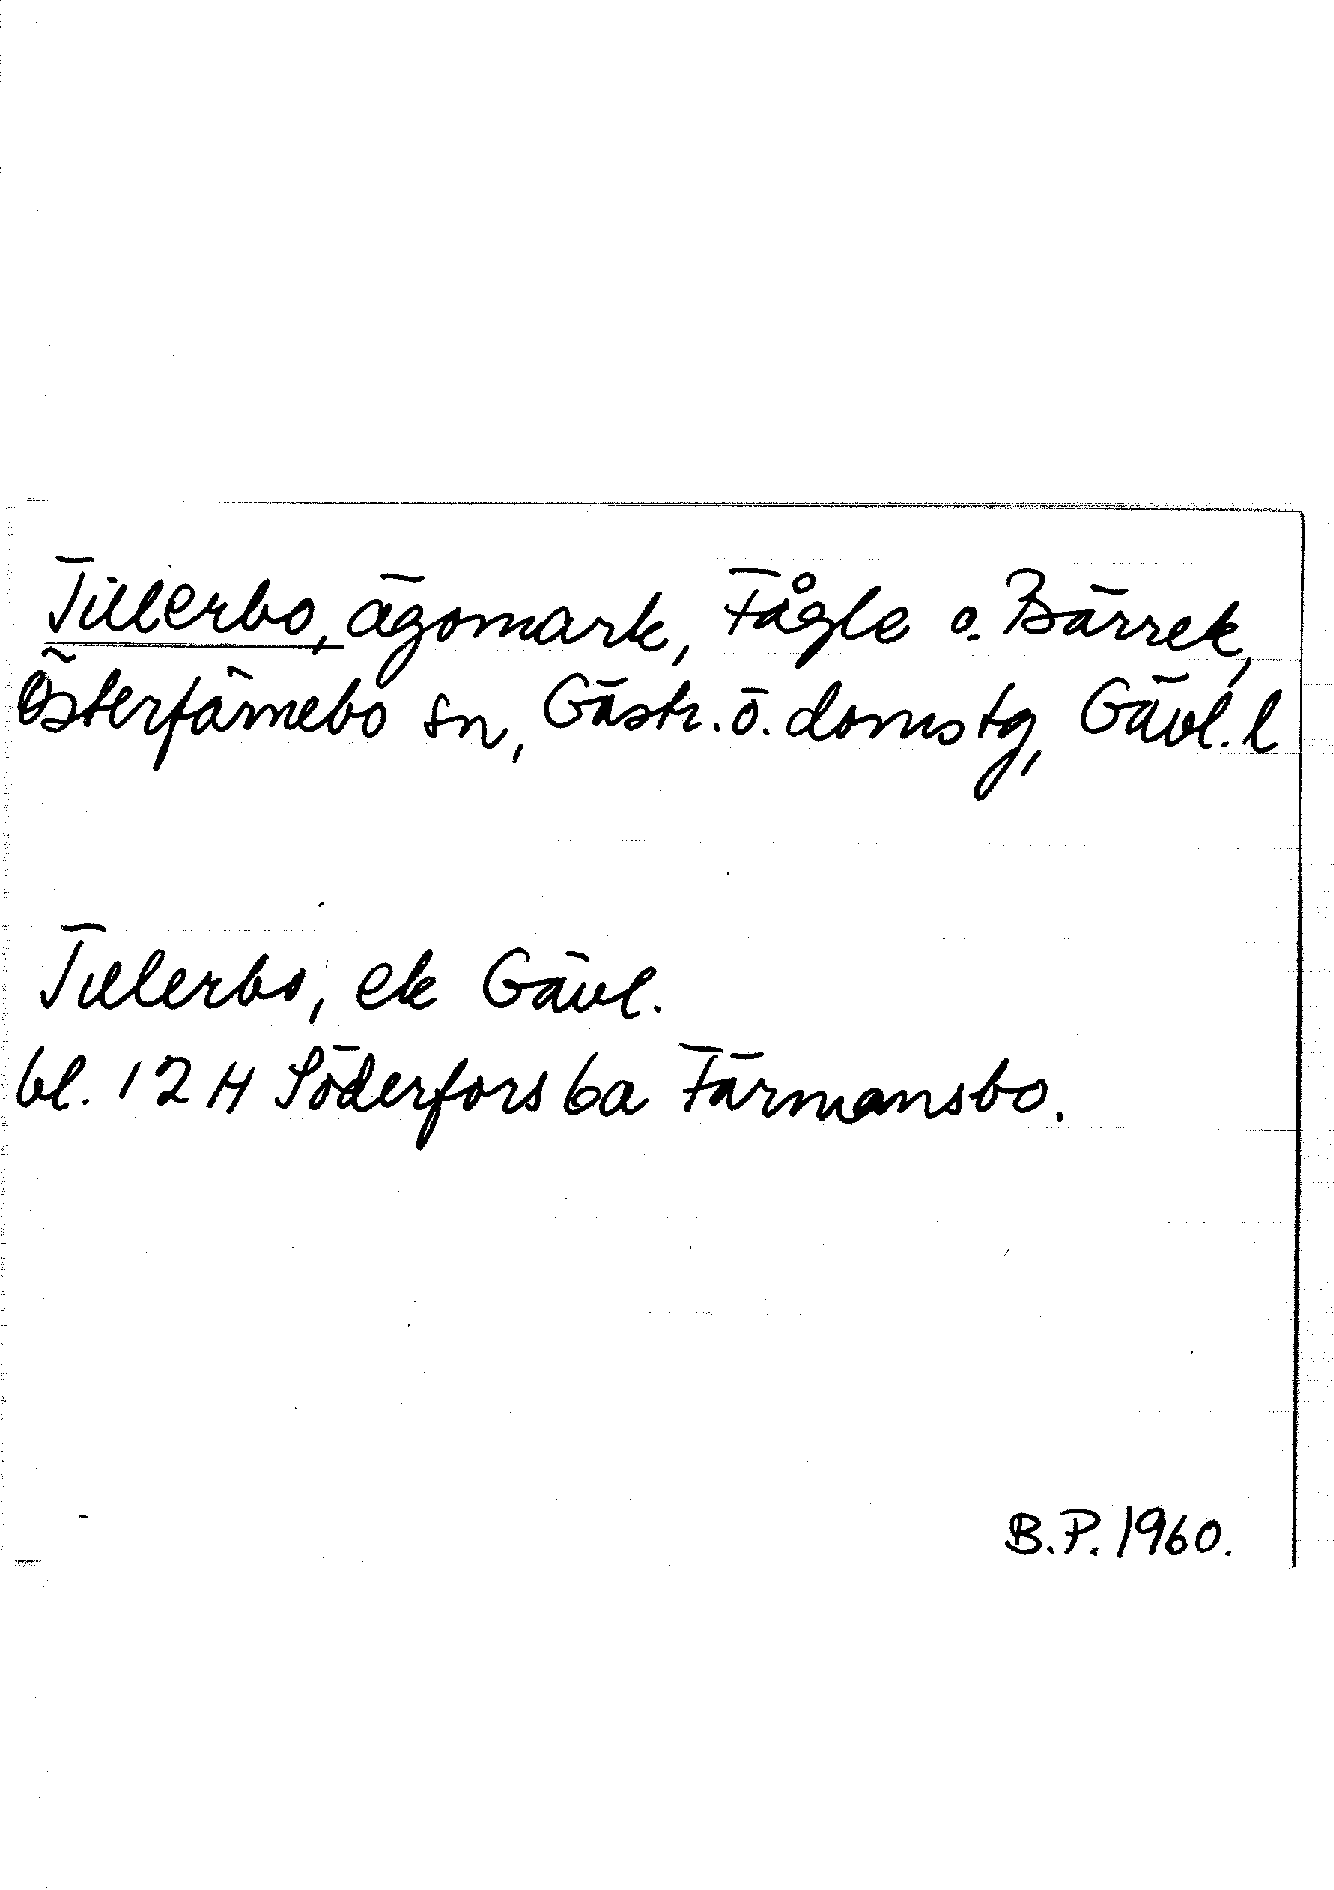 Tillerbo, ägomark, Fågle o. Bärrek,
Österfärnebo sn, Gästr. ö. domstg, Gävl. l
Tillerbo, ek Gävl.
bl. 12 H Söderfors 6a Färmansbo.
B.P. 1960.